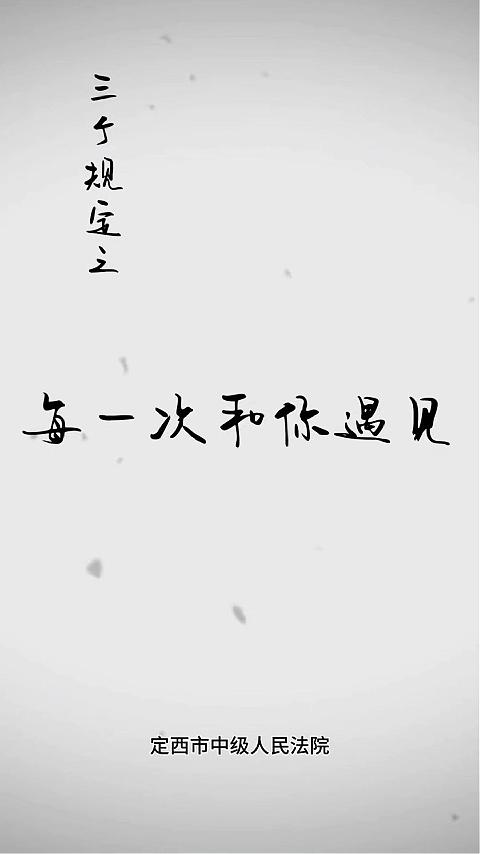 三个规定之
每一次和你遇见
定西市中级人民法院